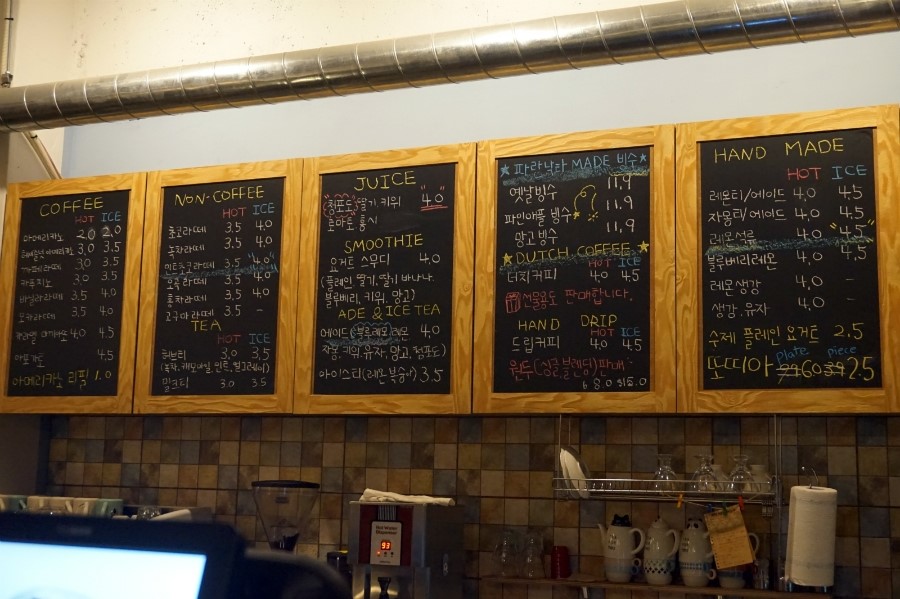 COFFEE
HOT ICE
아메리카노 2.0 2.0
3.0 3.5
카페라떼 3.0 3.5
카푸치노 3.0 3.5
바닐라라떼 3.5 4.0
모카라떼 3.5 4.0
카라멜 마끼아또 4.0 4.5
아포가토 4.5
아메리카노 리필 1.0
NON-COFFEE
HOT ICE
초코라떼 3.5 4.0
녹차라떼 3.5 4.0
민트초코라떼 3.5 "4.0"
오곡라떼 3.5 4.0
홍차라떼 3.5 4.0
고구마라떼 3.5 -
TEA
HOT ICE
허브티 3.0 3.5
(녹차, 캐모마일, 민트, 얼그레이)
밀크티 3.0 3.5
JUICE
청포도, 딸기, 키위 "4.0"
토마토, 홍시
SMOOTHIE
요거트 스무디 4.0
(플레인, 딸기, 딸기 바나나
블루베리, 키위, 망고)
ADE & ICE TEA
에이드(블루레몬, 레몬 4.0
자몽, 키위, 유자, 망고, 청포도)
아이스티(레몬, 복숭아) 3.5
★파란낙타 MADE 빙수★
옛날빙수 11.9
파인애플 빙수 11.9
망고빙수 11.9
★DUTCH COFFEE★
HOT ICE
더치커피 4.0 4.5
선물용도 판매합니다.
HAND DRIP
HOT ICE
드립커피 4.0 4.5
원두(싱글, 블렌딩) 판매
HAND MADE
HOT ICE
레몬티/에이드 4.0 4.5
자몽티/에이드 4.0 4.5
레몬석류 4.0 "4.5"
블루베리레몬 4.0 4.5
레몬생강 4.0 -
생강, 유자 4.0 -
수제 플레인 요거트 2.5
plate piece
또띠아 60 2.5
93